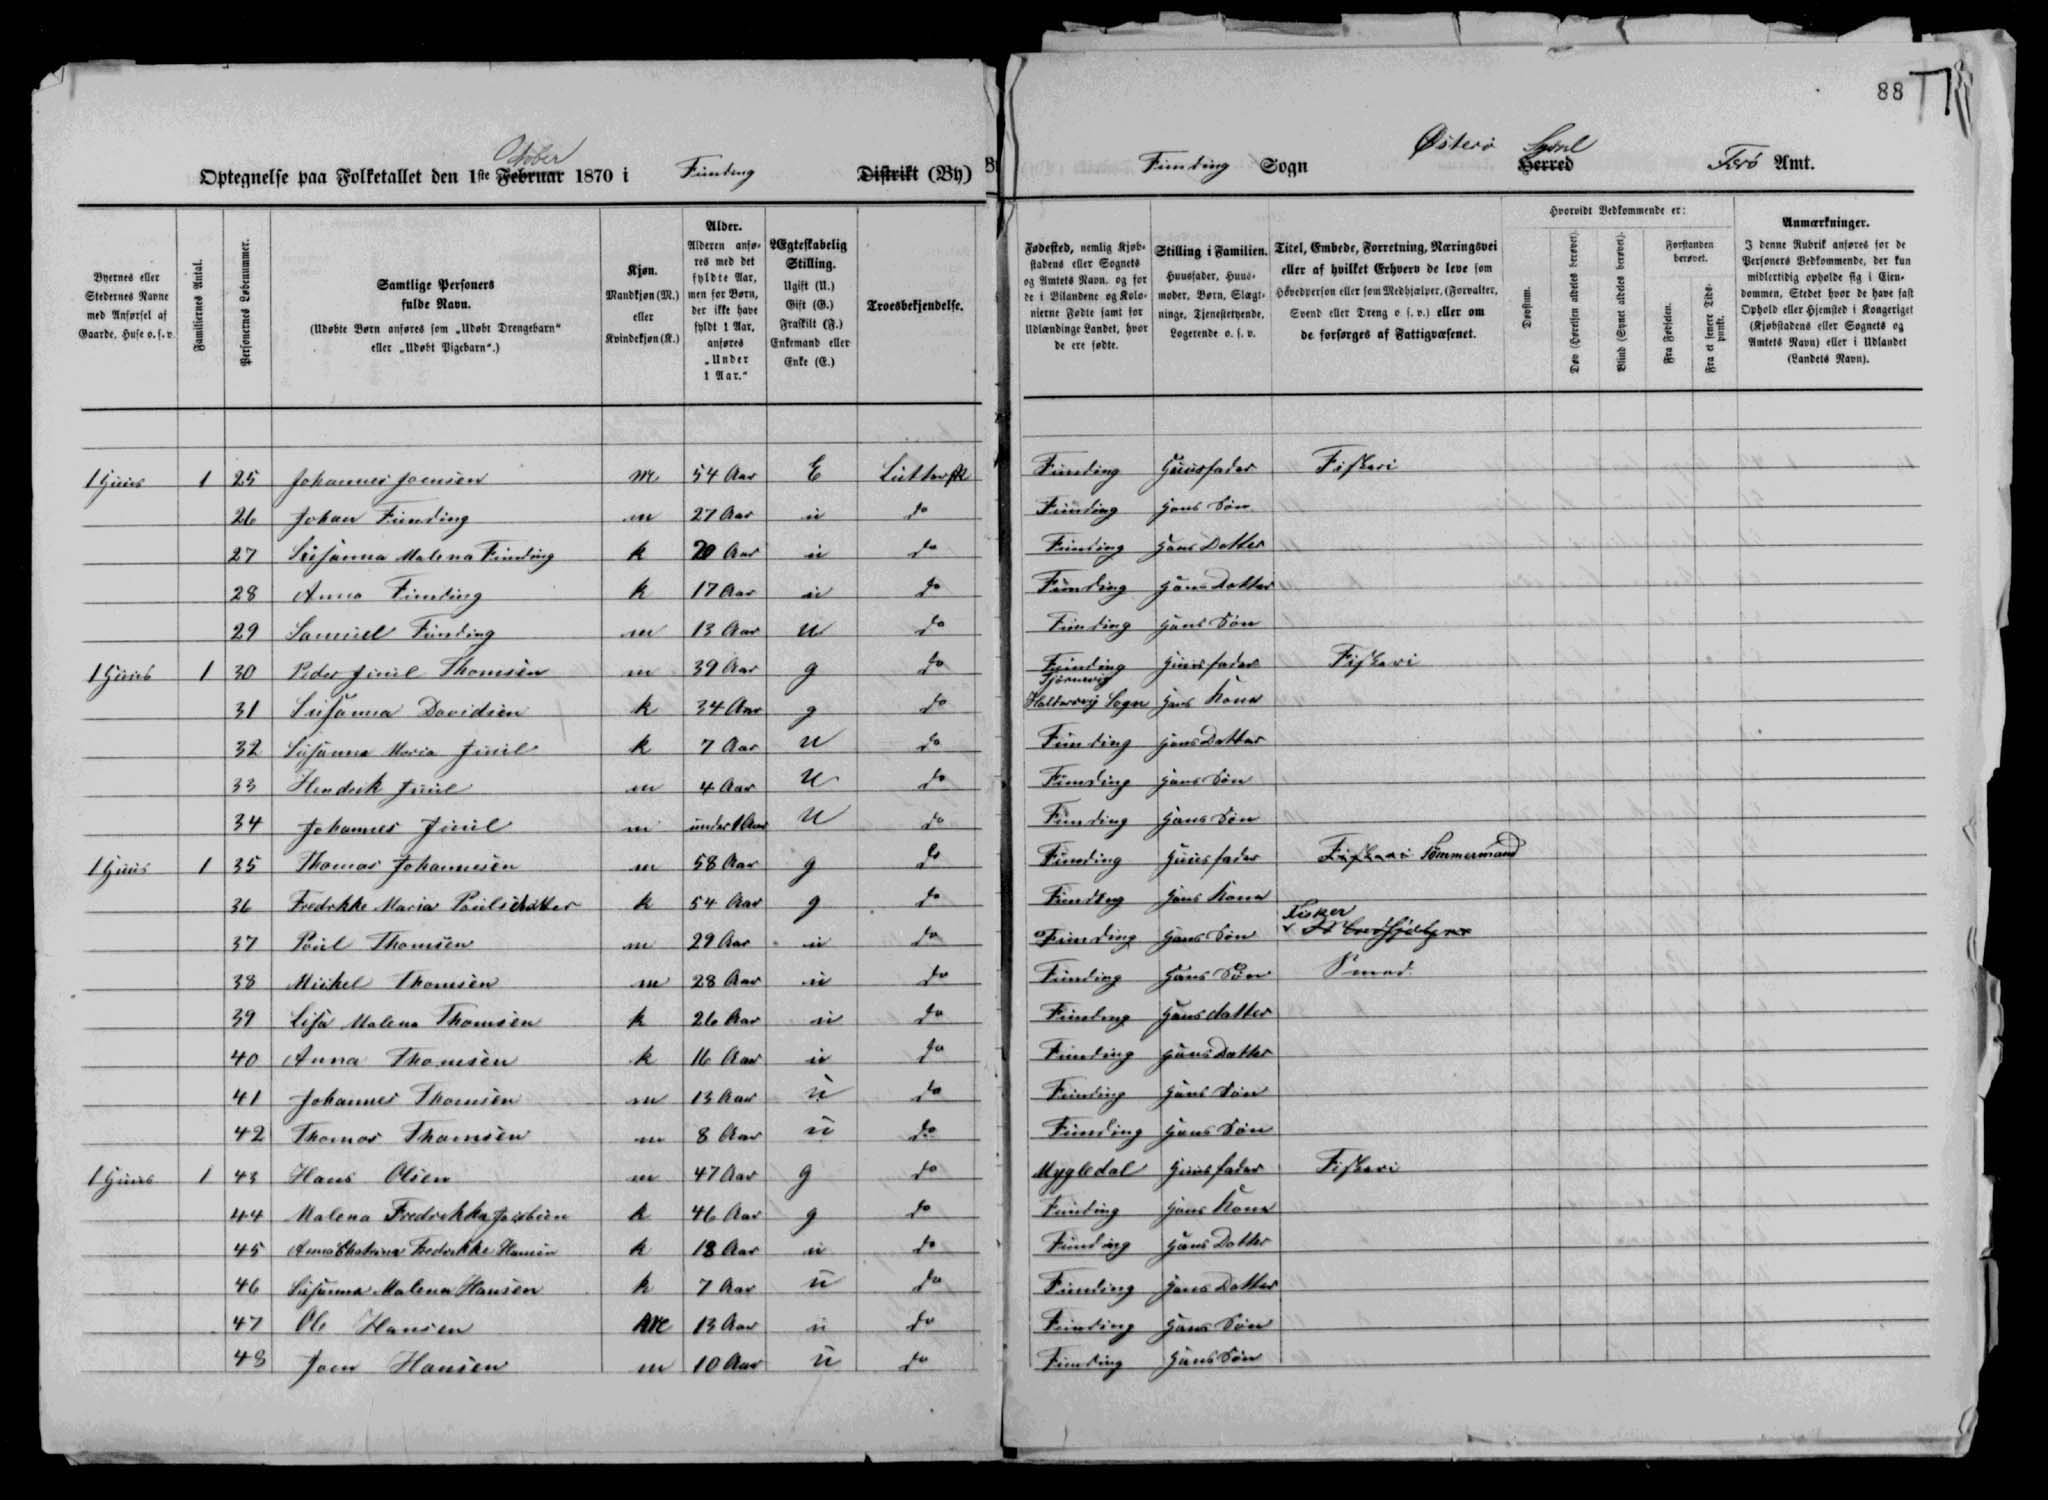 88
October
Optegnelse paa Folketallet den 1ste Februar 1870 i Funding Distrikt (By)
Funding Sogn Østerø Syssel Herred Færø Amt.
Byernes eller Stedernes Navne med Anførsel af Gaarde, Huse o.s.v.
Familiernes Antal.
Personernes Løbenummer.
Samtlige Personers fulde Navn.
(Udøbte Børn anføres som „Udøbt Drengebarn“ eller „Udøbt Pigebarn“.)
Kjøn.
Mandkjøn (M.) eller Kvindekjøn (K.)
Alder.
Alderen anføres med det fyldte Aar, men for Børn, der ikke have fyldt 1 Aar, anføres „Under 1 Aar.“
Ægteskabelig Stilling.
Ugift (U.) Gift (G.) Fraskilt (F.) Enkemand eller Enke (E.)
Troesbekjendelse.
Fødested, nemlig Kjøbstadens eller Sognets og Amtets Navn, og for de i Bilandene og Kolonierne Fødte samt for Udlændinge Landet, hvor de ere fødte.
Stilling i Familien.
Huusfader, Huusmoder, Børn, Slægtninge, Tjenestetyende, Logerende o.s.v.
Titel, Embede, Forretning, Næringsvei eller af hvilket Erhverv de leve som Hovedperson eller som Medhjælper, (Forvalter, Svend eller Dreng o.s.v.) eller om de forsørges af Fattigvæsenet.
Hvorvidt Vedkommende er:
Døvstum.
Døv (Hørelsen aldeles berøvet).
Blind (Synet aldeles berøvet).
Forstanden berøvet.
Fra Fødselen.
Fra et senere Tidspunkt.
Anmærkninger.
I denne Rubrik anføres for de Personers Vedkommende, der kun midlertidig opholde sig i Eiendommen, Stedet hvor de have fast Ophold eller Hjemsted i Kongeriget (Kjøbstadens eller Sognets og Amtets Navn) eller i Udlandet (Landets Navn).
1 Huus 1 25 Johannes Joensen M 54 Aar E Luthersk Funding Huusfader Fiskeri
26 Johan Funding m 27 Aar u do Funding Hans Søn
27 Susanna Malena Funding k 20 Aar u do Funding Hans Datter
28 Anna Funding k 17 Aar u do Funding Hans Datter
29 Samuel Funding m 13 Aar u do Funding Hans Søn
1 Huus 1 30 Peder Juul Thomsen m 39 Aar g do Funding Huusfader Fiskeri
31 Susanna Davidsen k 34 Aar g do Tjørnevig Haldersvig Sogn Hans Kone
32 Susanna Maria Juul k 7 Aar U do Funding Hans Datter
33 Hendrik Juul m 4 Aar U do Funding Hans Søn
34 Johannes Juul m under 1 Aar U do Funding Hans Søn
1 Huus 1 35 Thomas Johannesen m 58 Aar g do Funding Huusfader Fiskeri Tømmermand
36 Fredrikke Maria Poulsdatter k 54 Aar g do Funding Hans Kone
37 Poul Thomsen m 29 Aar u do Funding Hans Søn Fisker
38 Mickel Thomsen m 28 Aar u do Funding Hans Søn Smed
39 Lisa Malena Thomsen k 26 Aar u do Funding Hans datter
40 Anna Thomsen k 16 Aar u do Funding Hans Datter
41 Johannes Thomsen m 13 Aar u do Funding Hans Søn
42 Thomas Thomsen m 8 Aar u do Funding Hans Søn
1 Huus 1 43 Hans Olsen m 47 Aar g do Mygledal Huusfader Fiskeri
44 Malena Fredrikka Jacobsen k 46 Aar g do Funding Hans Kone
45 Anna Chatrina Fredrikke Hansen k 18 Aar u do Funding Hans Datter
46 Susanna Malena Hansen k 7 Aar u do Funding Hans Datter
47 Ole Hansen M 13 Aar u do Funding Hans Søn
48 Joen Hansen m 10 Aar u do Funding Hans Søn